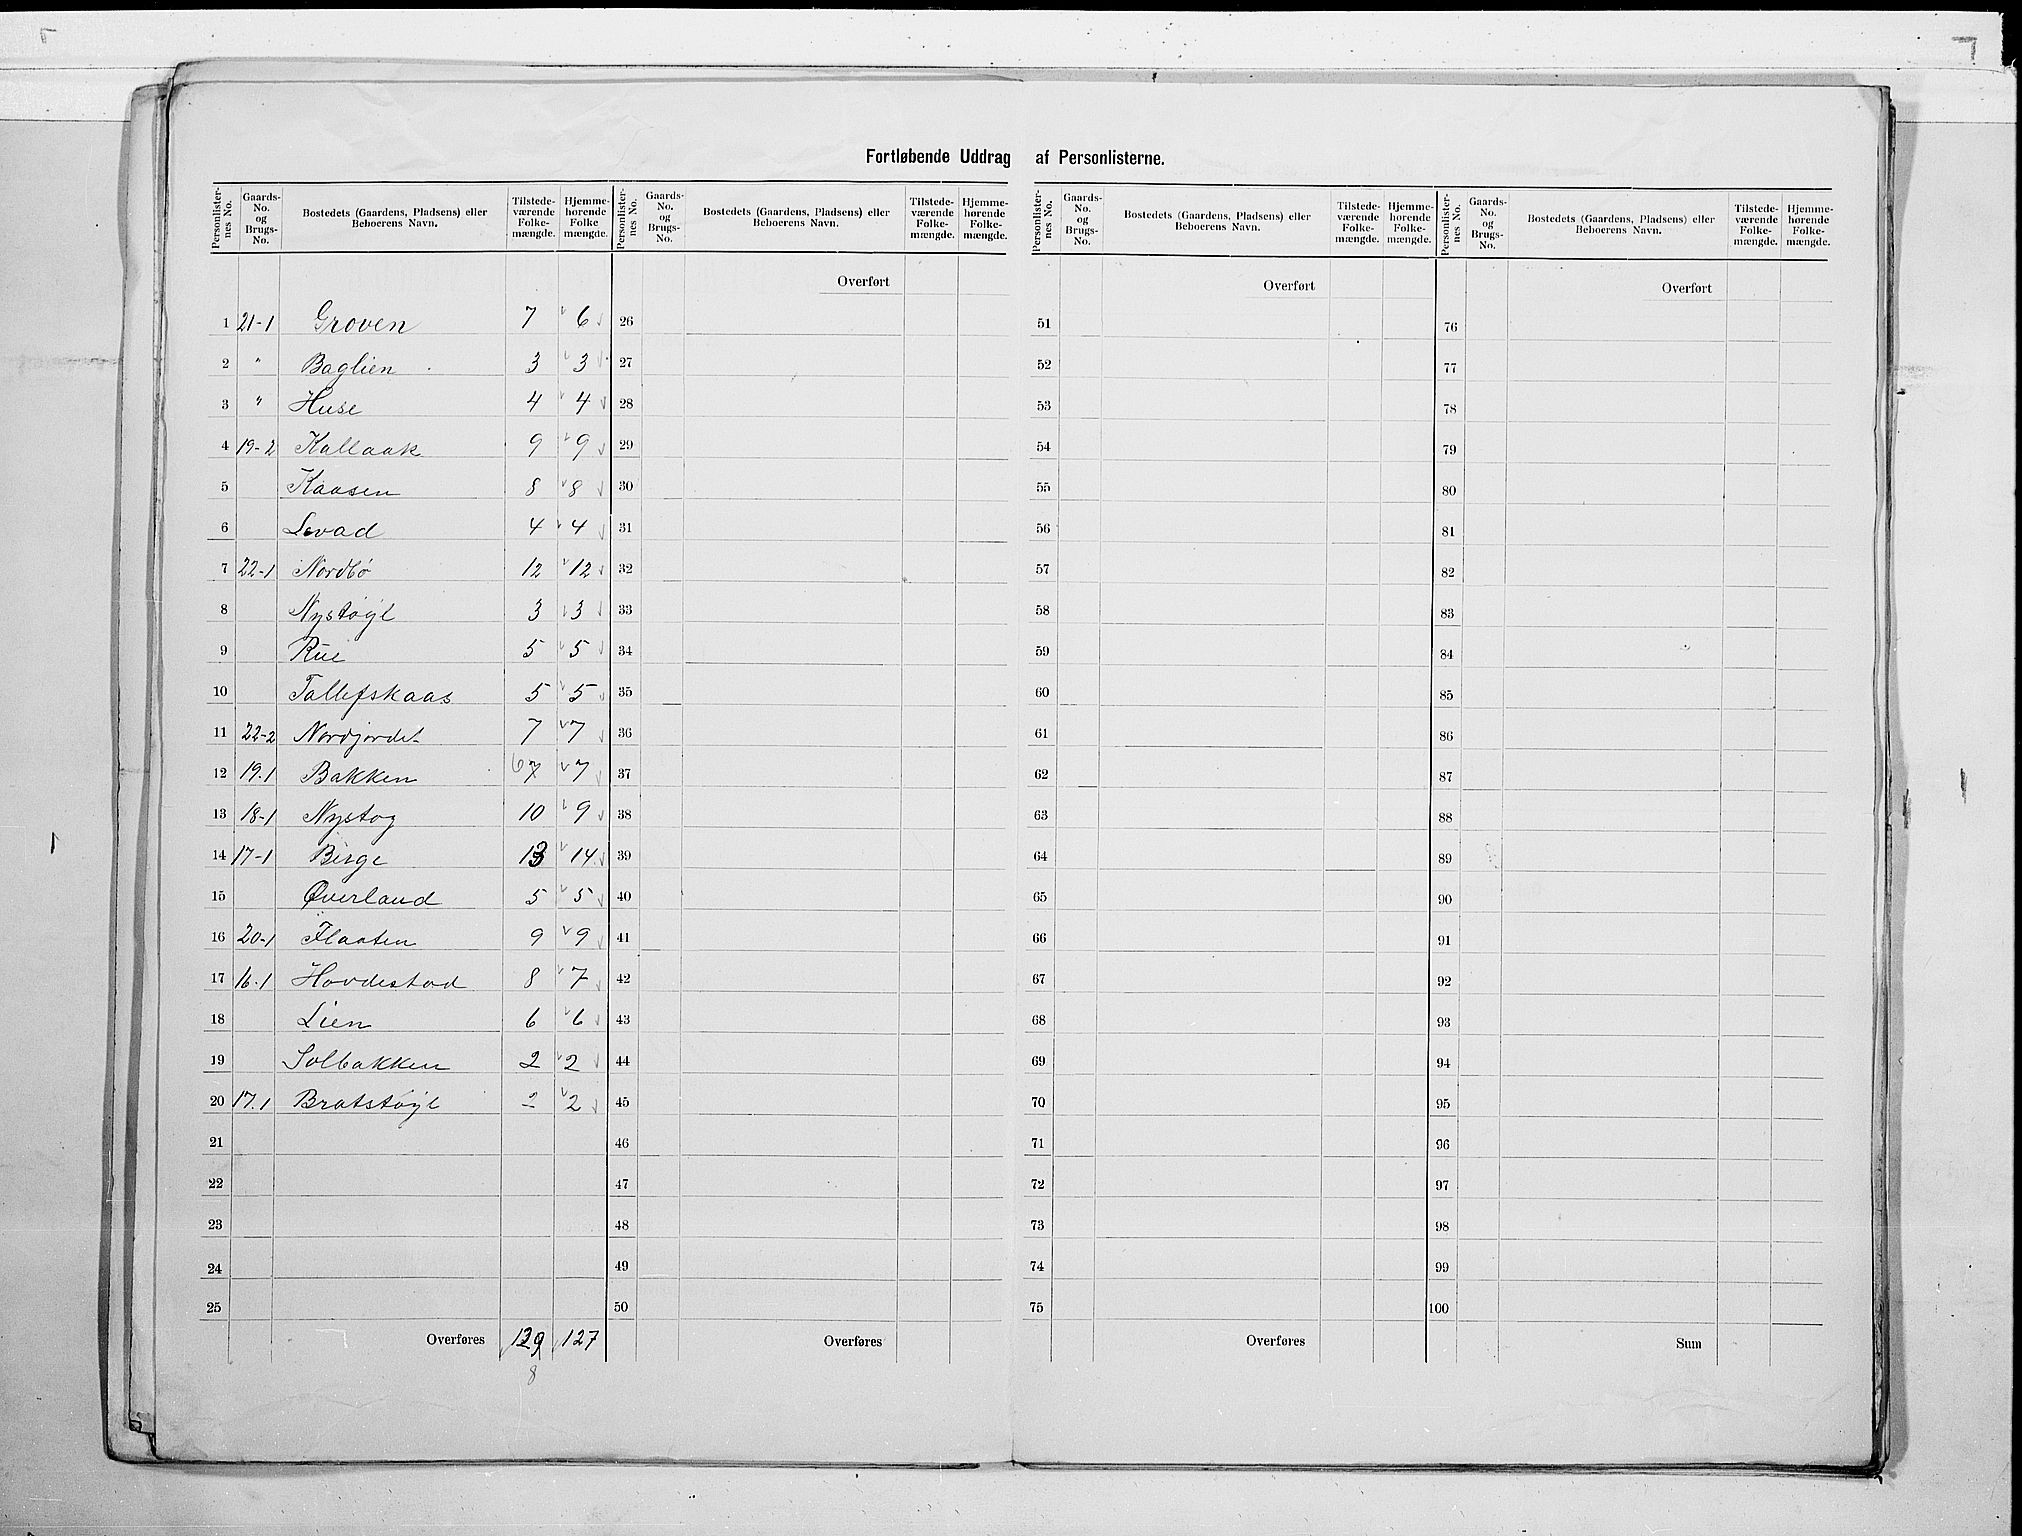 Fortløbende Uddrag af Personlisterne.
Personlisternes No. | Gaards-No. og Brugs-No. | Bostedets (Gaardens, Pladsens) eller Beboerens Navn. | Tilstedeværende Folkemængde. | Hjemmehørende Folkemængde. | Personlisternes No. | Gaards-No. og Brugs-No. | Bostedets (Gaardens, Pladsens) eller Beboerens Navn. | Tilstedeværende Folkemængde. | Hjemmehørende Folkemængde. | Personlisternes No. | Gaards-No. og Brugs-No. | Bostedets (Gaardens, Pladsens) eller Beboerens Navn. | Tilstedeværende Folkemængde. | Hjemmehørende Folkemængde. | Personlisternes No. | Gaards-No. og Brugs-No. | Bostedets (Gaardens, Pladsens) eller Beboerens Navn. | Tilstedeværende Folkemængde. | Hjemmehørende Folkemængde.
Overført Overført Overført
1 21-1 Groven 7 6 26 51 76
2 " Baglien 3 3 27 52 77
3 " Huse 4 4 28 53 78
4 19-2 Kallaak 9 9 29 54 79
5 Kaasen 8 8 30 55 80
6 Levad 4 4 31 56 81
7 22-1 Nordbø 12 12 32 57 82
8 Nystøyl 3 3 33 58 83
9 Rue 5 5 34 59 84
10 Tallefskaas 5 5 35 60 85
11 22-2 Nordjordet 7 7 36 61 86
12 19.1 Bakken 6 7 7 37 62 87
13 18-1 Nystog 10 9 38 63 88
14 17-1 Berge 13 14 39 64 89
15 Øverland 5 5 40 65 90
16 20-1 Flaaten 9 9 41 66 91
17 16.1 Hovdestad 8 7 42 67 92
18 Lien 6 6 43 68 93
19 Solbakken 2 2 44 69 94
20 17.1 Bratstøyl 2 2 45 70 95
21 46 71 96
22 47 72 97
23 48 73 98
24 49 74 99
25 50 75 100
Overføres 129 127 Overføres Overføres Sum
8